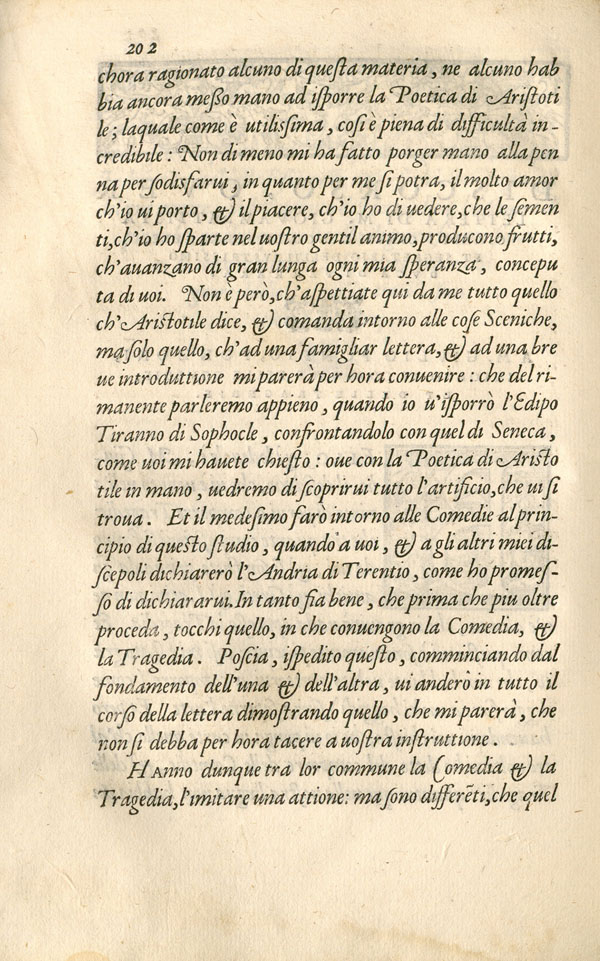 202
chora ragionato alcuno di queſta materia, ne alcuno hab
bia ancora meſſo mano ad iſporre la Poetica di Ariſtoti
le; laquale come è utiliſſima, coſi è piena di difficultà in-
credibile: Non di meno mi ha fatto porger mano alla pen
na per ſodisfarui, in quanto per me ſi potra, il molto amor
ch'io ui porto, & il piacere, ch'io ho di uedere, che le ſemen
ti, ch'io ho ſparte nel uoſtro gentil animo, producono frutti,
ch'auanzano di gran lunga ogni mia ſperanza, concepu
ta di uoi. Non è però, ch'aſpettiate qui da me tutto quello
ch'Ariſtotile dice, & comanda intorno alle coſe Sceniche,
ma ſolo quello, ch'ad una famigliar lettera, & ad una bre
ue introduttione mi parerà per hora conuenire: che del ri-
manente parleremo appieno, quando io u'iſporrò l'Edipo
Tiranno di Sophocle, confrontandolo con quel di Seneca,
come uoi mi hauete chieſto: oue con la Poetica di Ariſto
tile in mano, uedremo di ſcoprirui tutto l'artificio, che ui ſi
troua. Et il medeſimo farò intorno alle Comedie al prin-
cipio di queſto ſtudio, quando a uoi, & a gli altri miei di-
ſcepoli dichiarerò l'Andria di Terentio, come ho promeſ-
ſo di dichiararui. In tanto fia bene, che prima che piu oltre
proceda, tocchi quello, in che conuengono la Comedia, &
la Tragedia. Poſcia, iſpedito queſto, comminciando dal
fondamento dell'una & dell'altra, ui anderò in tutto il
corſo della lettera dimoſtrando quello, che mi parerà, che
non ſi debba per hora tacere a uoſtra inſtruttione.
HANNO dunque tra lor commune la Comedia & la
Tragedia, l'imitare una attione: ma ſono differẽti, che quel